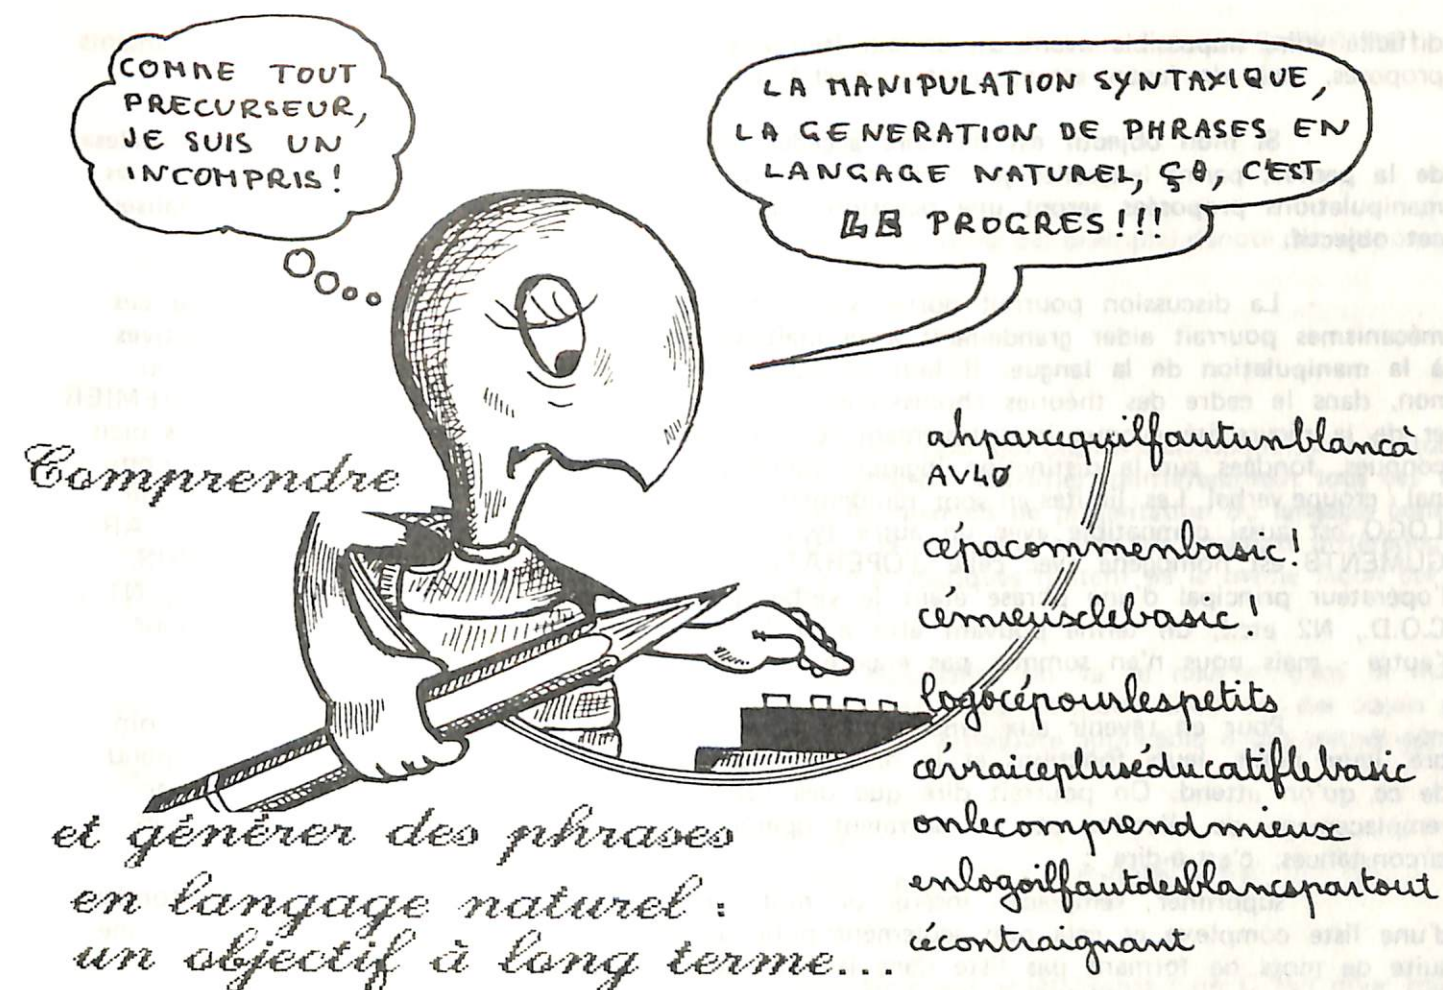 COMME TOUT
PRECURSEUR,
JE SUIS UN
INCOMPRIS!
LA MANIPULATION SYNTAXIQUE,
LA GENERATION DE PHRASES EN
LANGAGE NATUREL, ÇA, C'EST
LE PROGRES!!!
Comprendre
ahparcequilfautunblancà
AV40
cépacommenbasic!
cémieusclebasic!
logocépourlespetits
cévraicepluséducatiflebasic
onlecomprend mieux
enlogoilfautdesblancspartout
cécontraignant
et générer des phrases
en langage naturel :
un objectif à long terme...